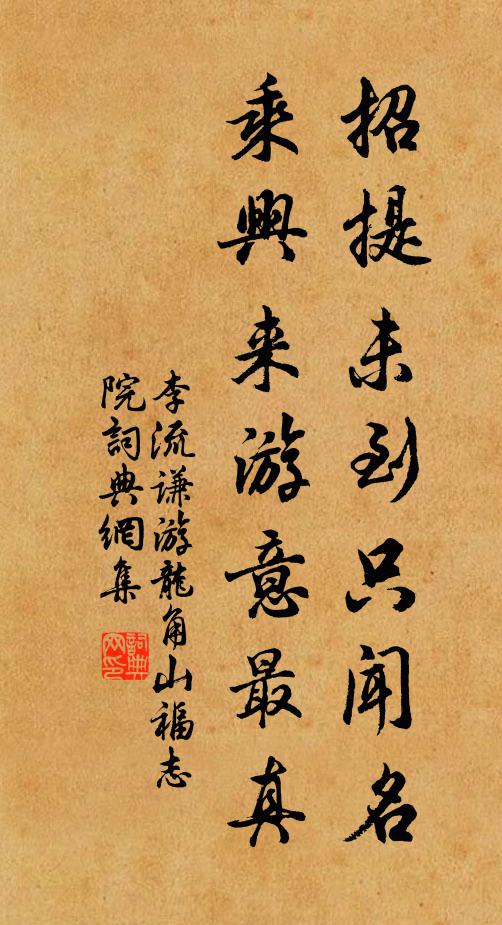 招提未到只闻名
乘興来游意最真
李流谦游龍角山福志
院詞典網集
詞典网印